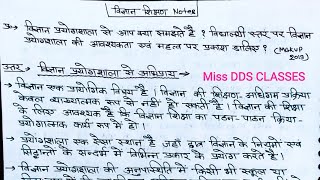 विज्ञान शिक्षण Notes
प्र० विज्ञान प्रयोगशाला से आप क्या समझते हैं ? विद्यालयी स्तर पर विज्ञान
प्रयोगशाला की आवश्यकता एवं महत्व पर प्रकाश डालिए ? (Makup 2019)
उत्तर - विज्ञान प्रयोगशाला से अभिप्राय -
Miss DDS CLASSES
→ विज्ञान एक प्रायोगिक विषय है । विज्ञान की शिक्षण-अधिगम प्रक्रिया
केवल व्याख्यात्मक रूप से नहीं हो सकती है । विज्ञान की शिक्षा
के लिए आवश्यक है कि विज्ञान शिक्षा का पठन-पाठन क्रिया-
प्रयोगात्मक कार्य रूप में हो ।
→ प्रयोगशाला एक ऐसा स्थान है जहाँ छात्र विज्ञान के नियमों एवं
सिद्धान्तों के सन्दर्भ में विभिन्न प्रकार के प्रयोग करते हैं ।
→ विज्ञान प्रयोगशाला की अनुपस्थिति में किसी भी स्कूल या